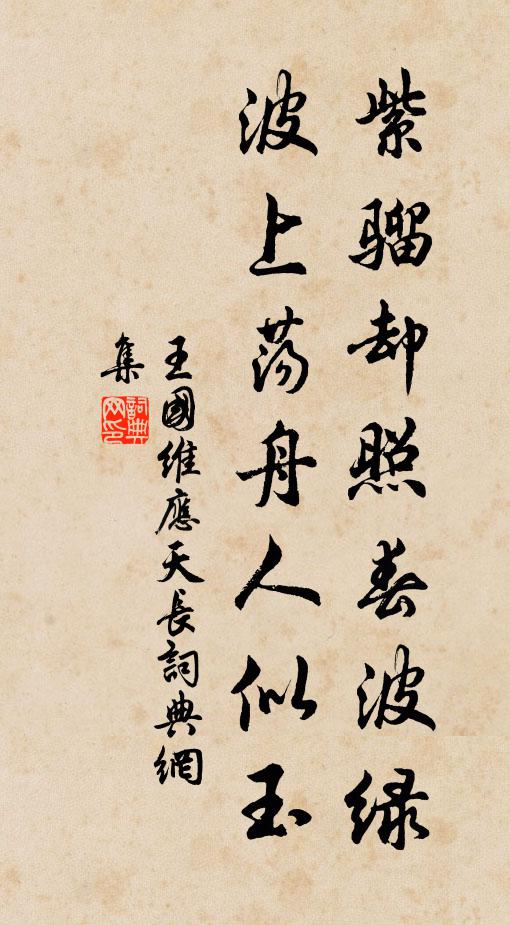 紫骝却照春波绿
波上荡舟人似玉
王國維應天長詞典網
集
詞典網印